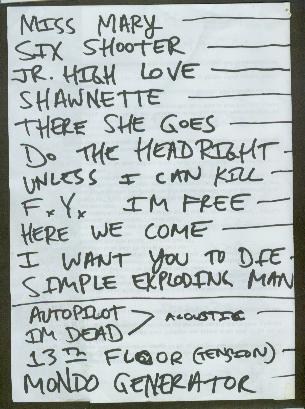 MISS MARY
SIX SHOOTER
JR. HIGH LOVE
SHAWNETTE
THERE SHE GOES
DO THE HEADRIGHT
UNLESS I CAN KILL
F.Y. IM FREE
HERE WE COME
I WANT YOU TO DIE
SIMPLE EXPLODING MAN
AUTOPILOT
ACOUSTIC
IM DEAD
13TH FLOOR (TENSION)
MONDO GENERATOR